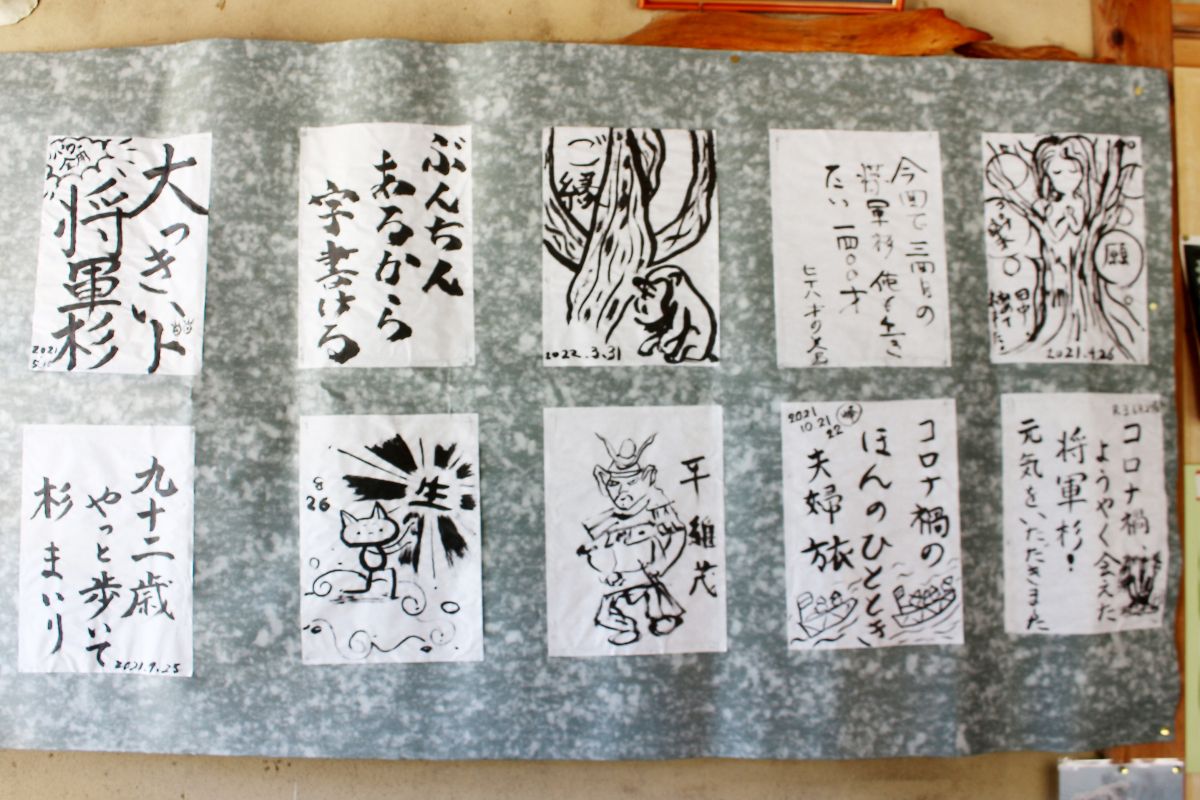 大っきいド
将軍杉
2021
5.10
ぶんちん
あるから
字書ける
ご縁
2022.3.31
今回で三回目の
将軍杉 何を生き
たい 一四〇〇才
願
2021.4.26
九十二歳
やっと歩いて
杉まいり
2021.9.25
8
26
生
平維茂
2021
10.21
22
コロナ禍の
ほんのひととき
夫婦旅
コロナ禍、
ようやく会えた
将軍杉!
元気を、いただきました